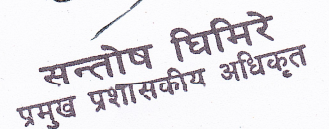 सन्तोष घिमिरे
प्रमुख प्रशासकीय अधिकृत